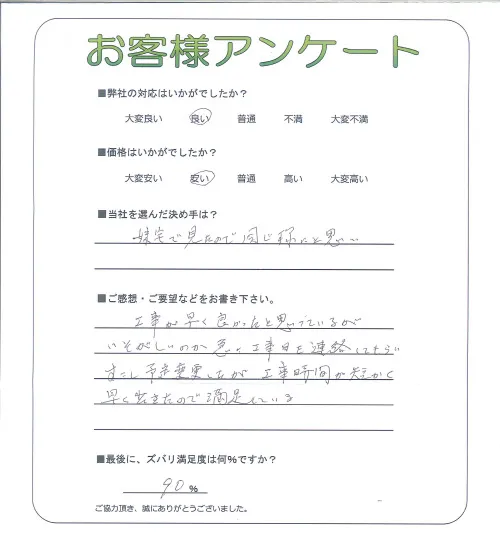 お客様アンケート
■弊社の対応はいかがでしたか？
大変良い 良い 普通 不満 大変不満
■価格はいかがでしたか？
大変安い 安い 普通 高い 大変高い
■当社を選んだ決め手は？
妹宅で見たので同じ様にと思い
■ご感想・ご要望などをお書き下さい。
工事が早く良かったと思っているが
いそがしいのか急に工事日を連絡して
すこし予定変更したが 工事時間が短かく
早く出きたので満足している
■最後に、ズバリ満足度は何％ですか？
90 %
ご協力頂き、誠にありがとうございました。